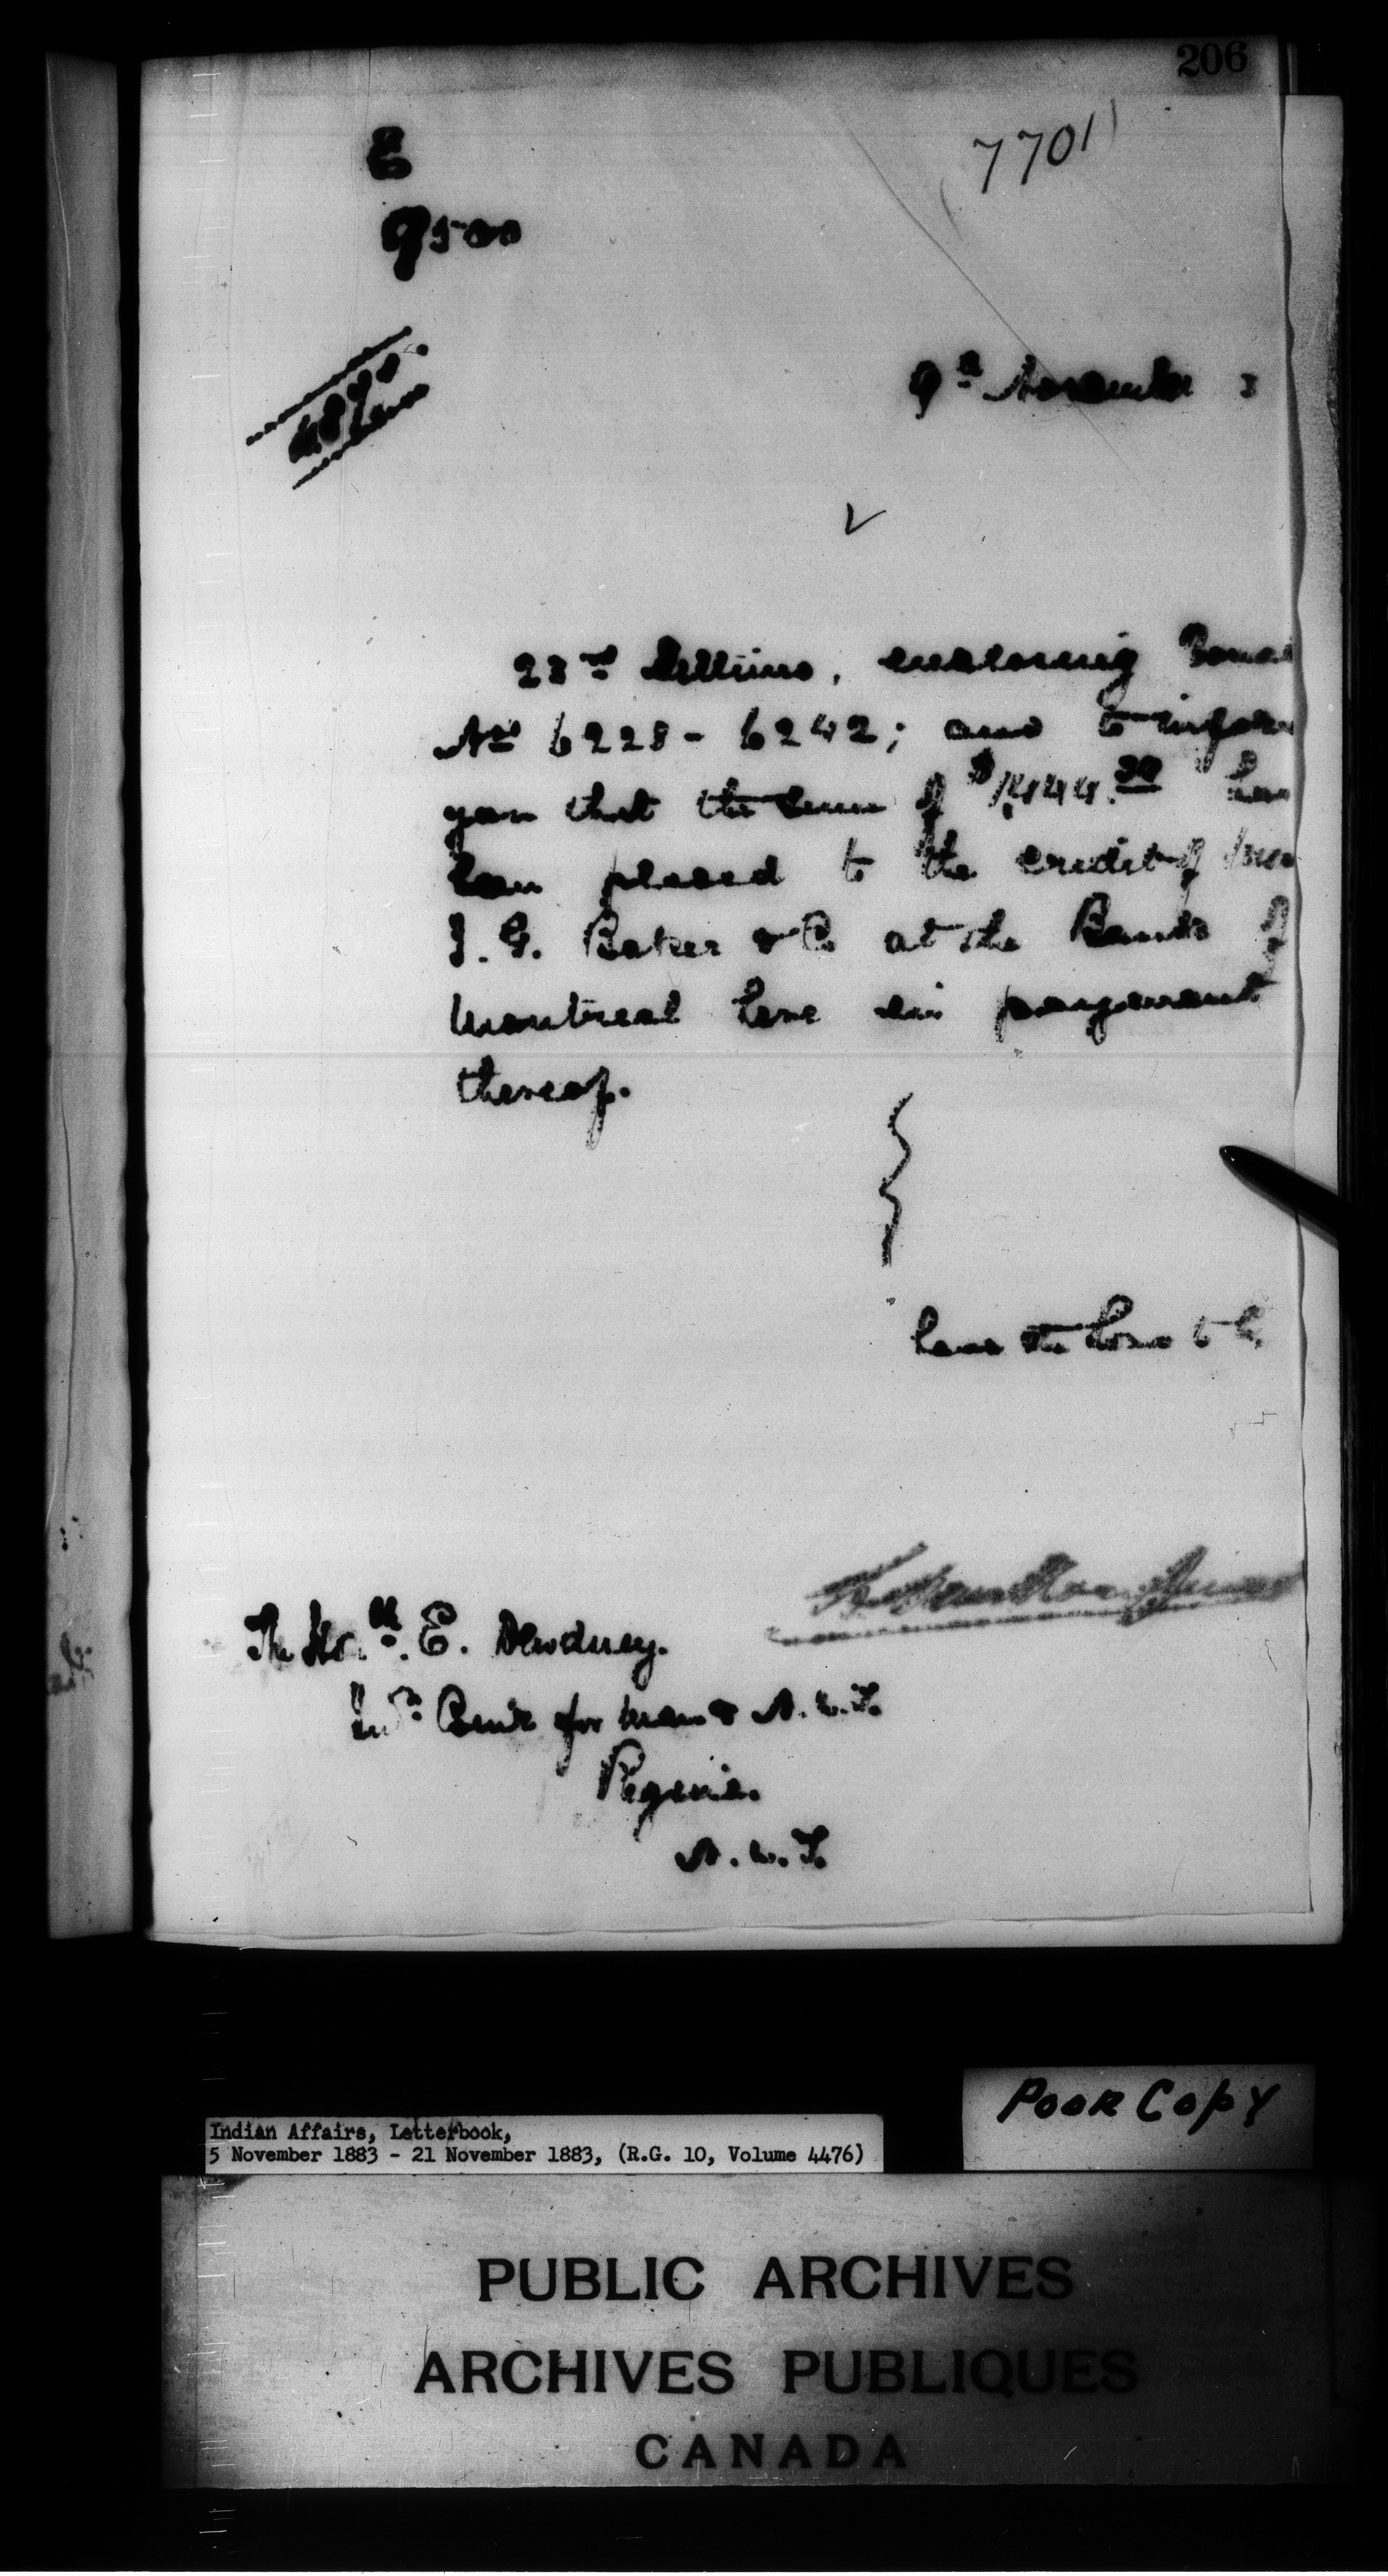 206
7701
E
9500
9th November 3
23rd Ultimo, enclosing
Nos 6228 - 6242; and to inform
you that the sum of $1,444.30 has
been placed to the credit of
J. G. Baker & Co at the Bank of
Montreal here in payment
thereof.
have the honor to be
The Honble. E. Dewdney.
Indn Comr for Man & N.W.T.
Regina.
N.W.T.
POOR COPY
Indian Affairs, Letterbook,
5 November 1883 - 21 November 1883, (R.G. 10, Volume 4476)
PUBLIC ARCHIVES
ARCHIVES PUBLIQUES
CANADA